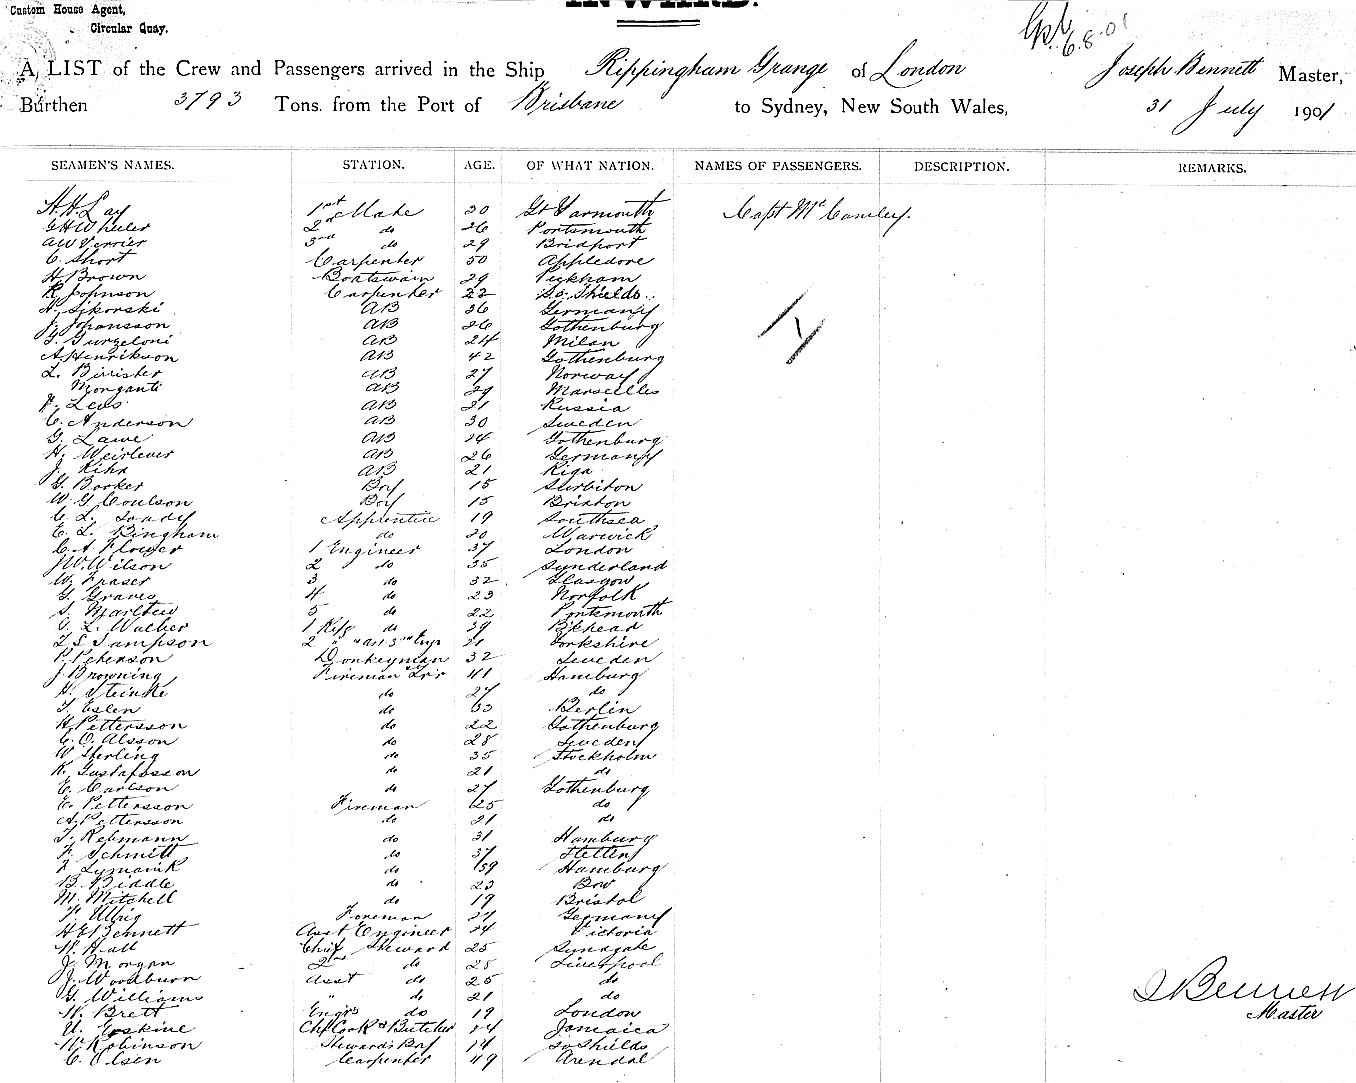 Custom House Agent,
Circular Quay.
INWARD.
6.8.01
A LIST of the Crew and Passengers arrived in the Ship Rippingham Grange of London Joseph Bennett Master,
Burthen 3793 Tons from the Port of Brisbane to Sydney, New South Wales, 31 July 1901
SEAMEN'S NAMES. STATION. AGE. OF WHAT NATION. NAMES OF PASSENGERS. DESCRIPTION. REMARKS.
H.H. Lay 1st Mate 30 Gt Yarmouth Capt Mc
G H Wheeler 2nd do 26 Portsmouth
3rd do 29 Bridport
C. Short Carpenter 50 Appledore
H Brown Boatswain 29 Peckham
R. Johnson Carpenter 22 So. Shields.
A. Sikorski AB 36 Germany
J. Johansson AB 26 Gothenburg
G. Gurzeloni AB 24 Milan
A Henrikson AB 42 Gothenburg
L. Birrister AB 27 Norway
Morganti AB 29 Marseilles
Leos AB 21 Russia
C. Anderson AB 30 Sweden
G. Lawe AB 24 Gothenburg
H. Weirlever AB 26 Germany
J. AB 21 Riga
G. Barker Boy 15 Surbiton
W. G Coulson Boy 15 Brixton
C. L. Apprentice 19 Southsea
E. L. Bingham do 20 Warwick
C. A Flower 1 Engineer 37 London
J W. Wilson 2 do 35 Sunderland
W. Fraser 3 do 32 Glasgow
G. Graves 4 do 23 Norfolk
S. Marlteu 5 do 22 Portsmouth
L. Walker 1 Rifg do 39 B'khead
L S Sampson 2 " " 21 Yorkshire
P. Peterson Donkeyman 32 Sweden
J Browning Fireman 41 Hamburg
H. Steinke do 27 do
T. Eslen do 33 Berlin
H Pettersson do 22 Gothenburg
C. O. Alsson do 28 Sweden
W Sterling do 35 Stockholm
K. Gustafsson do 21 do
E. Carlson do 27 Gothenburg
E. Pettersson Fireman 25 do
A. Pettersson do 21 do
T. Rebmann do 31 Hamburg
F. Schmitt do 37 Stettin
Lymanik do 39 Hamburg
B. Biddle do 23 Bow
M. Mitchell do 19 Bristol
Ulbrig Foreman 27 Germany
H E Bennett Asst Engineer 24 Victoria
W. Hall Chief Steward 25 Sundgate
J. Morgan 2nd do 28 Liverpool
J. Woodburn Asst do 25 do
G. Williams " do 21 do
W. Brett Engrs do 19 London
U. Erskine Chf Cook & Butcher 24 Jamaica
W Robinson Stewards Boy 14 So Shields
C. Olsen Carpenter 49 Arendal
J Bennett
Master